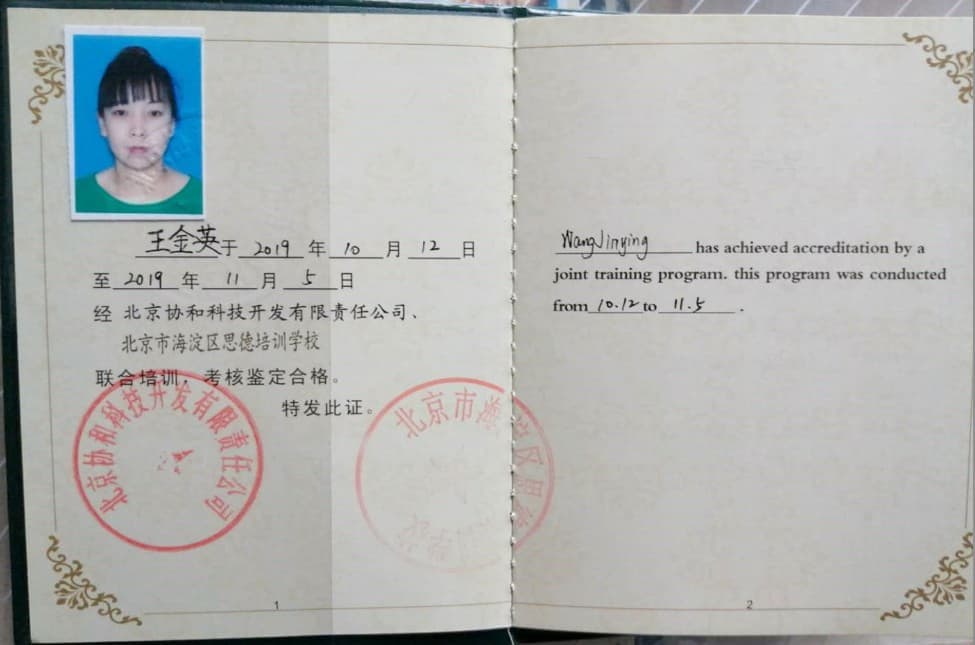 王金英于 2019 年 10 月 12 日
至 2019 年 11 月 5 日
经 北京协和科技开发有限责任公司、
北京市海淀区思德培训学校
联合培训，考核鉴定合格。
特发此证。
北京协和科技开发有限责任公司
北京市海淀区思德培训学校
1
WangJinying has achieved accreditation by a
joint training program. this program was conducted
from 10.12 to 11.5 .
2